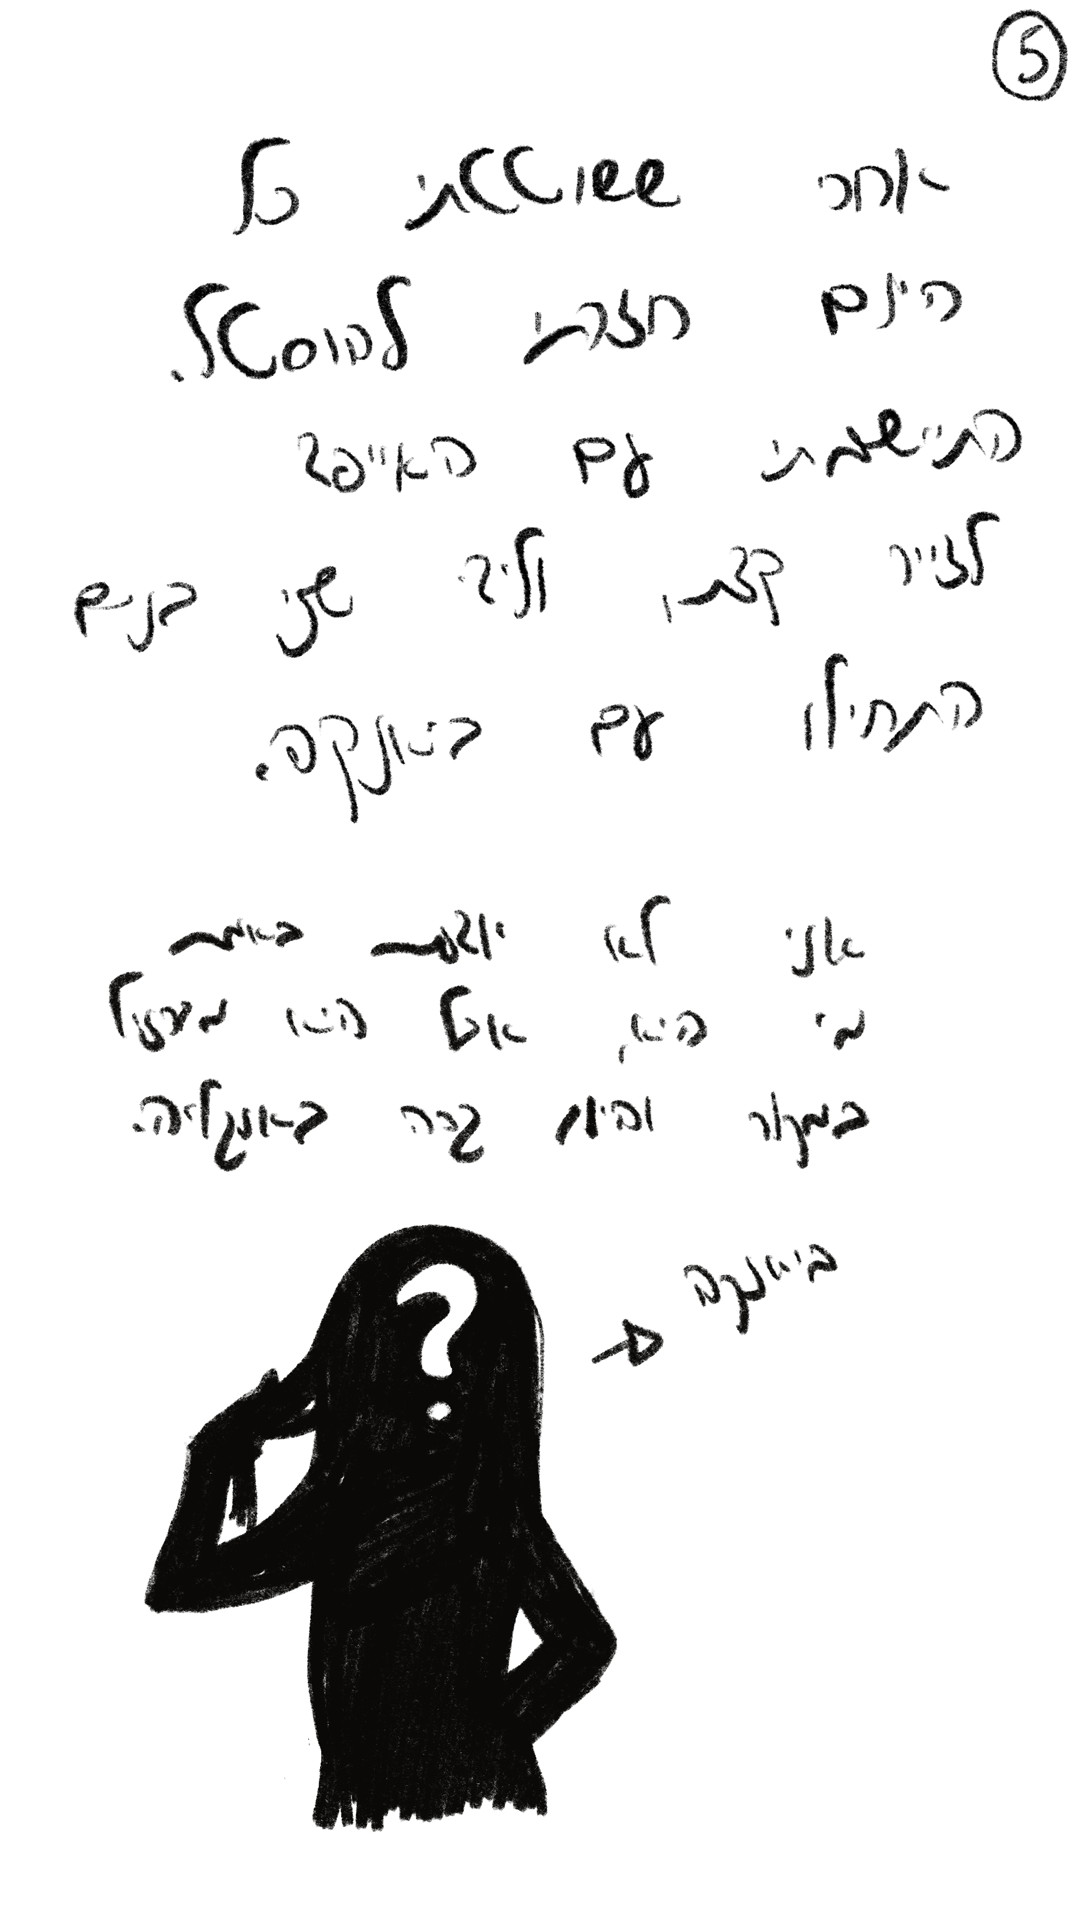 5
אחרי ששוטטתי כל
היום חזרתי להוסטל.
התיישבתי עם האייפד
לצייר קצת, וליד שני בנים
התחילו עם ביאנקה.
אני לא יודעת באמת
מי היא, אבל היא מברזיל
במקור והיום גרה באנגליה.
ביאנקה